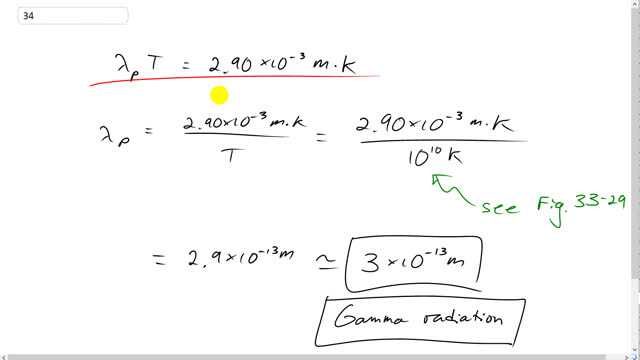 34
λₚ T = 2.90 × 10⁻³ m·K
λₚ = 2.90×10⁻³ m·K / T = 2.90×10⁻³ m·K / 10¹⁰ K
see Fig. 33-29
= 2.9×10⁻¹³ m ≃ 3×10⁻¹³ m
Gamma radiation